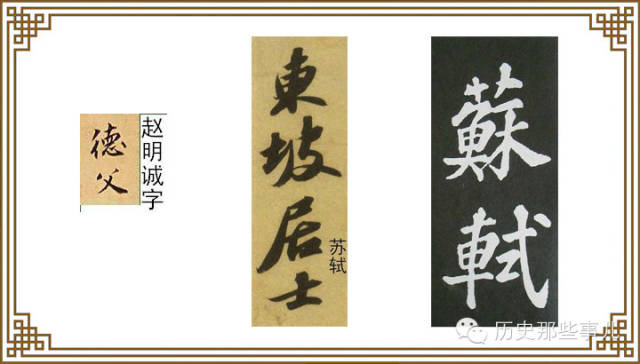 德父
赵明诚字
東坡居士
苏轼
蘇軾
历史那些事儿